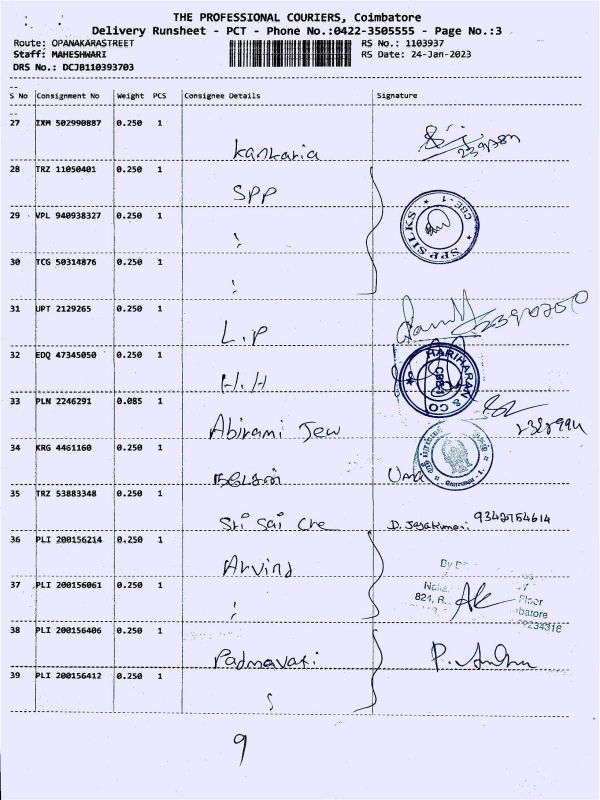 THE PROFESSIONAL COURIERS, Coimbatore
Delivery Runsheet - PCT - Phone No.:0422-3505555 - Page No.:3
Route: OPANAKARASTREET RS No.: 1103937
Staff: MAHESHWARI RS Date: 24-Jan-2023
DRS No.: DCJB110393703
--
S No Consignment No Weight PCS Consignee Details Signature
--
27 IXM 502990887 0.250 1
Kankaria
28 TRZ 11050401 0.250 1
SPP
29 VPL 940938327 0.250 1
CBE-1
SPP SILKS
30 TCG 50314876 0.250 1
31 UPT 2129265 0.250 1
L.P
32 EDQ 47345050 0.250 1
H.H
HARIHARAN & CO
CBE-1
33 PLN 2246291 0.085 1
Abirami Jew
34 KRG 4461160 0.250 1
Uma
35 TRZ 53883348 0.250 1
Sri Sai Che D. Jayakumari 9342754614
36 PLI 200156214 0.250 1
Arvind
37 PLI 200156061 0.250 1
824, R.. Floor
38 PLI 200156406 0.250 1
Padmavati
39 PLI 200156412 0.250 1
9